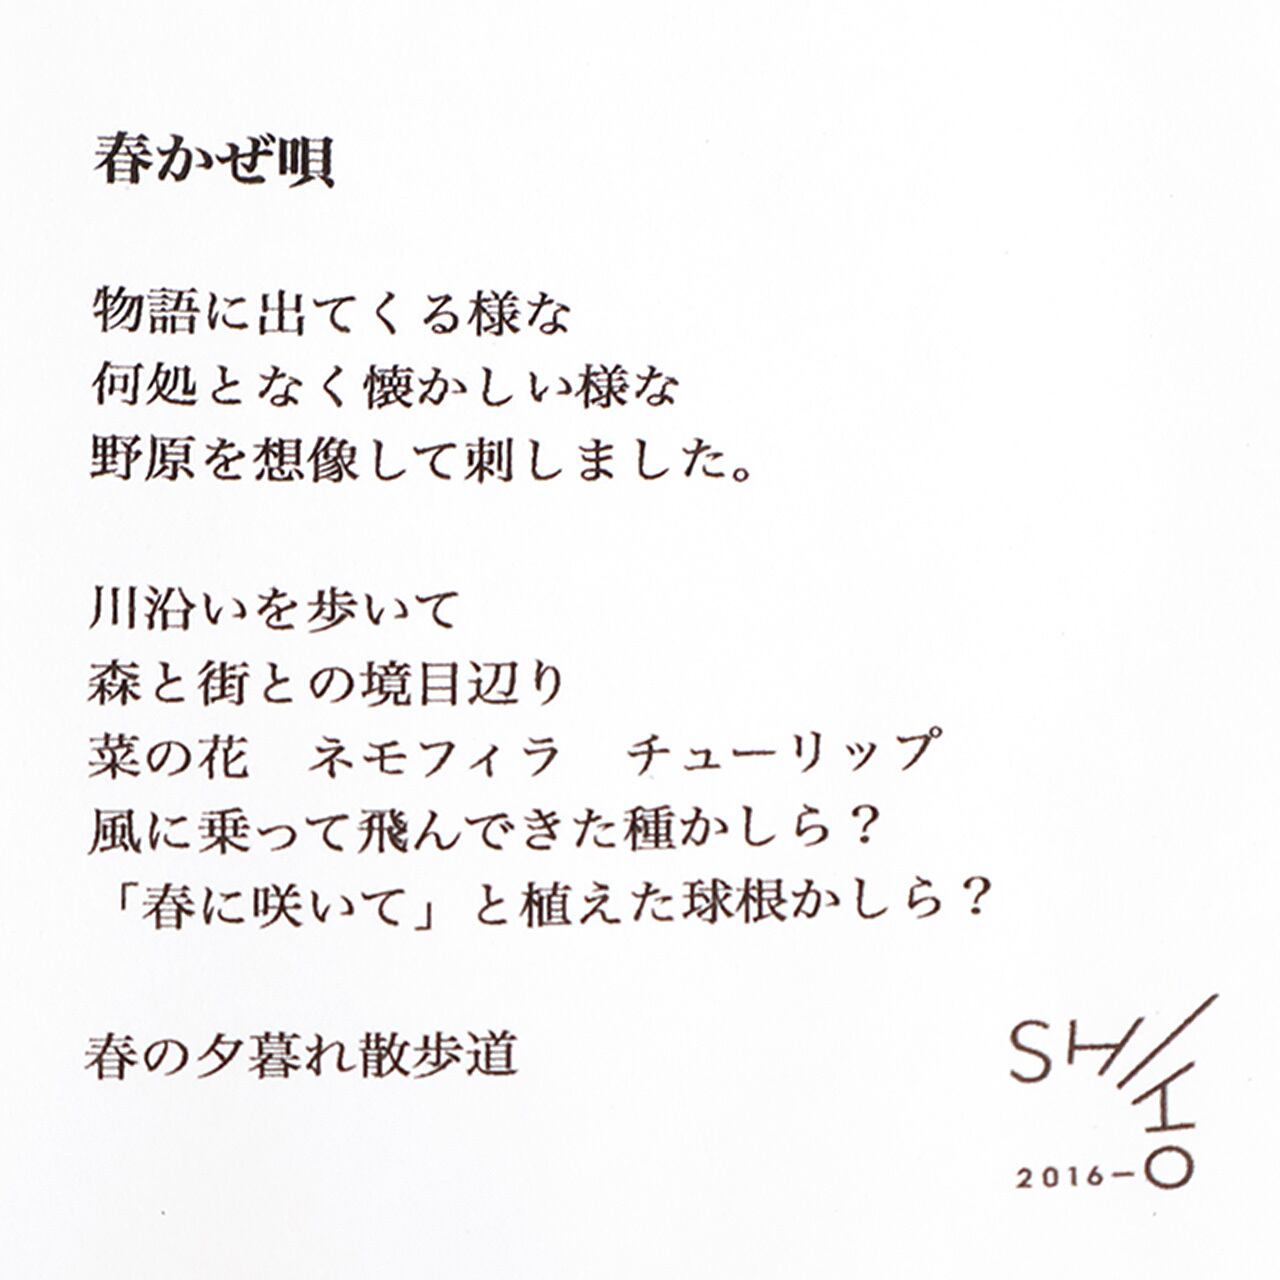 春かぜ唄
物語に出てくる様な
何処となく懐かしい様な
野原を想像して刺しました。
川沿いを歩いて
森と街との境目辺り
菜の花　ネモフィラ　チューリップ
風に乗って飛んできた種かしら？
「春に咲いて」と植えた球根かしら？
春の夕暮れ散歩道
SH/IO
2016-